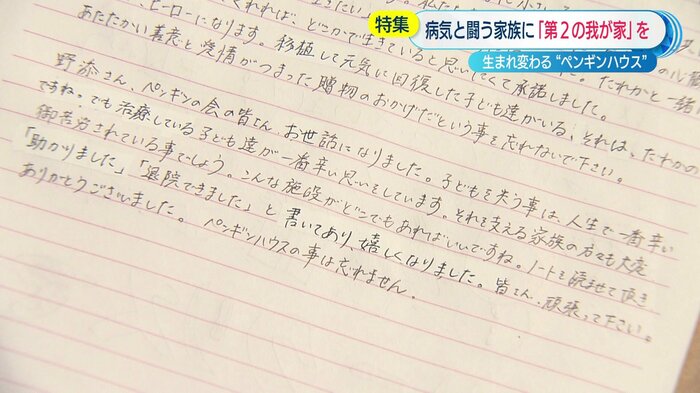 特集
病気と闘う家族に「第２の我が家」を
生まれ変わる“ペンギンハウス”
ヒーローになります。移植して元気に回復した子ども達がいる、それは、たわかの
あたたかい善意と愛情がつまった贈物のおかげだという事を忘れないで下さい。
野添さん、ペンギンの会の皆さん、お世話になりました。子どもを失う事は人生で一番辛い
ですね。でも治療している子ども達が一番辛い思いをしています。それを支える家族の方々も大変
御苦労されている事でしょう。こんな施設がどこでもあればいいですね。ノートを読ませて頂き
「助かりました」「退院できました」と書いてあり、嬉しくなりました。皆さん、頑張って下さい。
ありがとうございました。ペンギンハウスの事は忘れません。